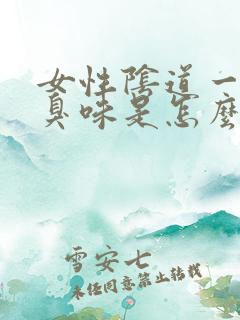 女性陰道一
臭味是怎麼
雪安七
未任同意禁止转载